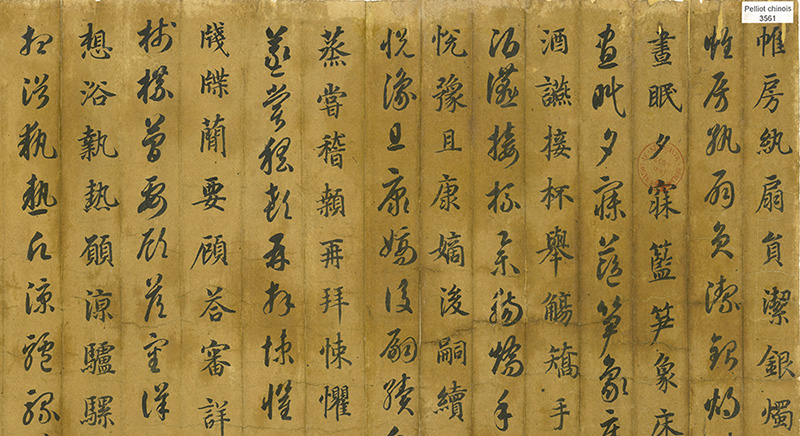 Pelliot chinois
3561
帷房紈扇員潔銀燭
帷房紈扇員潔銀燭
晝眠夕寐籃笋象床
晝眠夕寐籃笋象床
酒讌接杯舉觴矯手
酒讌接杯舉觴矯手
悅豫且康嫡後嗣續
悅豫且康嫡後嗣續
蒸嘗稽顙再拜悚懼
蒸嘗稽顙再拜悚懼
牋牒簡要顧答審詳
牋牒簡要顧答審詳
想浴執熱願涼驢騾
想浴執熱願涼驢騾